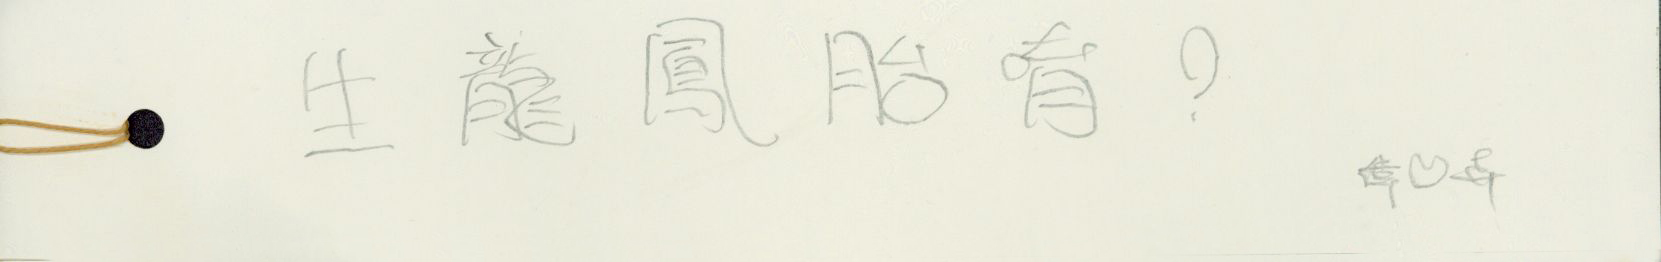 生龍鳳胎有？